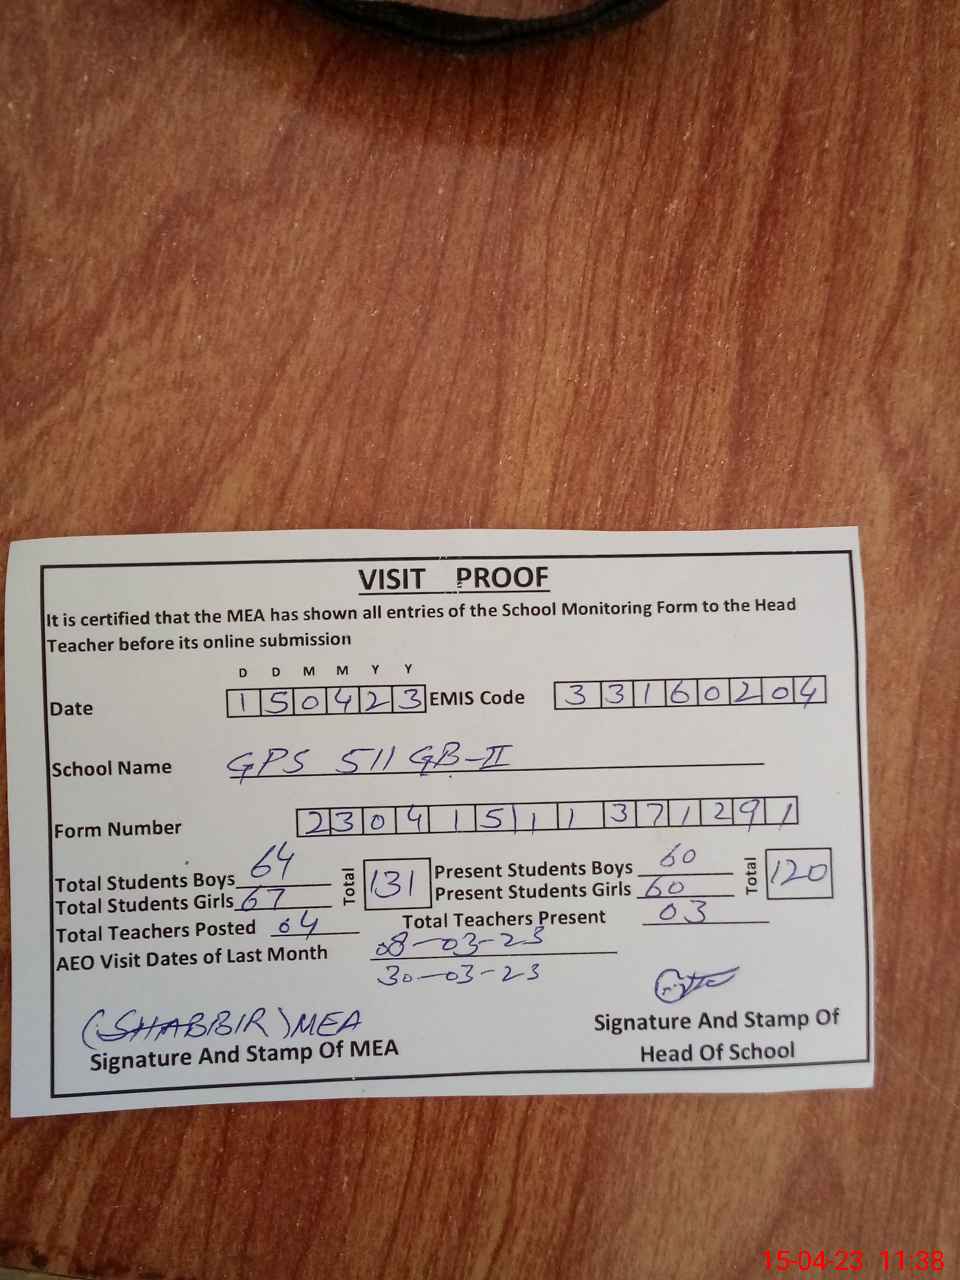 VISIT PROOF
It is certified that the MEA has shown all entries of the School Monitoring Form to the Head
Teacher before its online submission
D D M M Y Y
Date 150423 EMIS Code 33160204
School Name GPS 511 GB-II
Form Number 23041511371291
Total Students Boys 64 Total 131 Present Students Boys 60 Total 120
Total Students Girls 67 Present Students Girls 60
Total Teachers Posted 04 Total Teachers Present 03
AEO Visit Dates of Last Month 08-03-23
30-03-23
(SHABBIR) MEA
Signature And Stamp Of MEA
Signature And Stamp Of
Head Of School
15-04-23 11:38